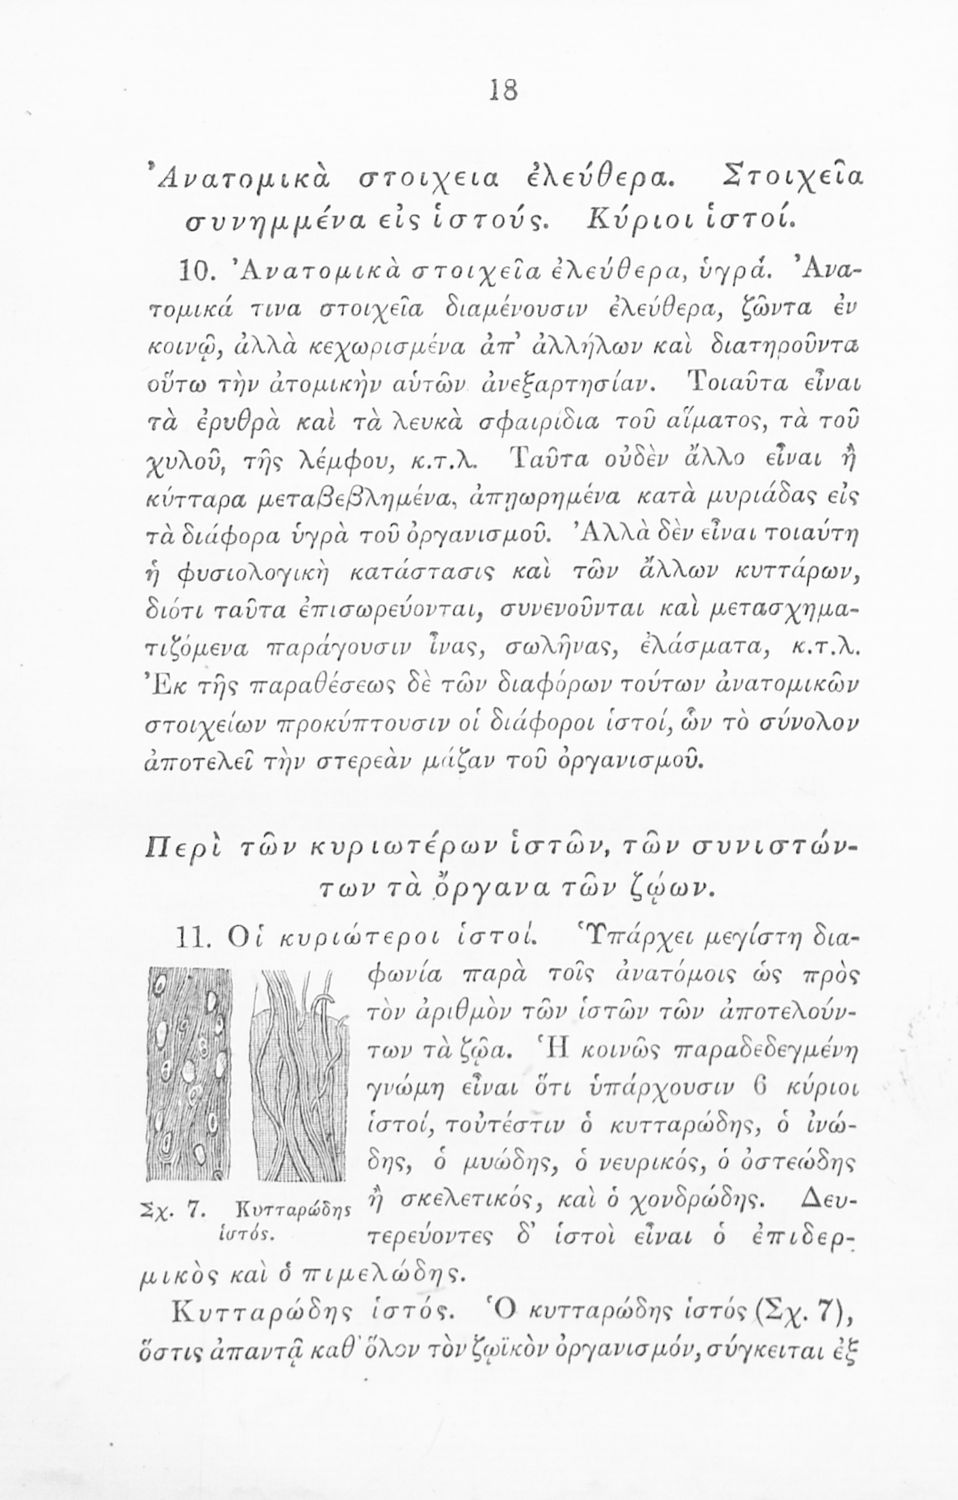 18
Ἀνατομικὰ στοιχεια ἐλεύθερα. Στοιχεῖα
συνημμένα εἰς ἱστούς. Κύριοι ἱστοί.
10. Ἀνατομικὰ στοιχεῖα ἐλεύθερα, ὑγρά. Ἀνα-
τομικά τινα στοιχεῖα διαμένουσιν ἐλεύθερα, ζῶντα ἐν
κοινῷ, ἀλλὰ κεχωρισμένα ἀπ’ ἀλλήλων καὶ διατηροῦντα
οὕτω τὴν ἀτομικὴν αὑτῶν ἀνεξαρτησίαν. Τοιαῦτα εἶναι
τὰ ἐρυθρὰ καὶ τὰ λευκὰ σφαιρίδια τοῦ αἵματος, τὰ τοῦ
χυλοῦ, τῆς λέμφου, κ.τ.λ. Ταῦτα οὐδὲν ἄλλο εἶναι ἢ
κύτταρα μεταβεβλημένα, ἀπῃωρημένα κατὰ μυριάδας εἰς
τὰ διάφορα ὑγρὰ τοῦ ὀργανισμοῦ. Ἀλλὰ δὲν εἶναι τοιαύτη
ἡ φυσιολογικὴ κατάστασις καὶ τῶν ἄλλων κυττάρων,
διότι ταῦτα ἐπισωρεύονται, συνενοῦνται καὶ μετασχημα-
τιζόμενα παράγουσιν ἶνας, σωλῆνας, ἐλάσματα, κ.τ.λ.
Ἐκ τῆς παραθέσεως δὲ τῶν διαφόρων τούτων ἀνατομικῶν
στοιχείων προκύπτουσιν οἱ διάφοροι ἱστοί, ὧν τὸ σύνολον
ἀποτελεῖ τὴν στερεὰν μάζαν τοῦ ὀργανισμοῦ.
Περὶ τῶν κυριωτέρων ἱστῶν, τῶν συνιστών-
των τὰ ὄργανα τῶν ζῴων.
11. Οἱ κυριώτεροι ἱστοί. Ὑπάρχει μεγίστη δια-
φωνία παρὰ τοῖς ἀνατόμοις ὡς πρὸς
τὸν ἀριθμὸν τῶν ἱστῶν τῶν ἀποτελούν-
των τὰ ζῷα. Ἡ κοινῶς παραδεδεγμένη
γνώμη εἶναι ὅτι ὑπάρχουσιν 6 κύριοι
ἱστοί, τοὐτέστιν ὁ κυτταρώδης, ὁ ἰνώ-
δης, ὁ μυώδης, ὁ νευρικός, ὁ ὀστεώδης
ἢ σκελετικός, καὶ ὁ χονδρώδης. Δευ-
τερεύοντες δ’ ἱστοὶ εἶναι ὁ ἐπιδερ-
μικὸς καὶ ὁ πιμελώδης.
Σχ. 7. Κυτταρώδης
ἱστός.
Κυτταρώδης ἱστός. Ὁ κυτταρώδης ἱστός (Σχ. 7),
ὅστις ἀπαντᾷ καθ’ ὅλον τὸν ζῳϊκὸν ὀργανισμόν, σύγκειται ἐξ